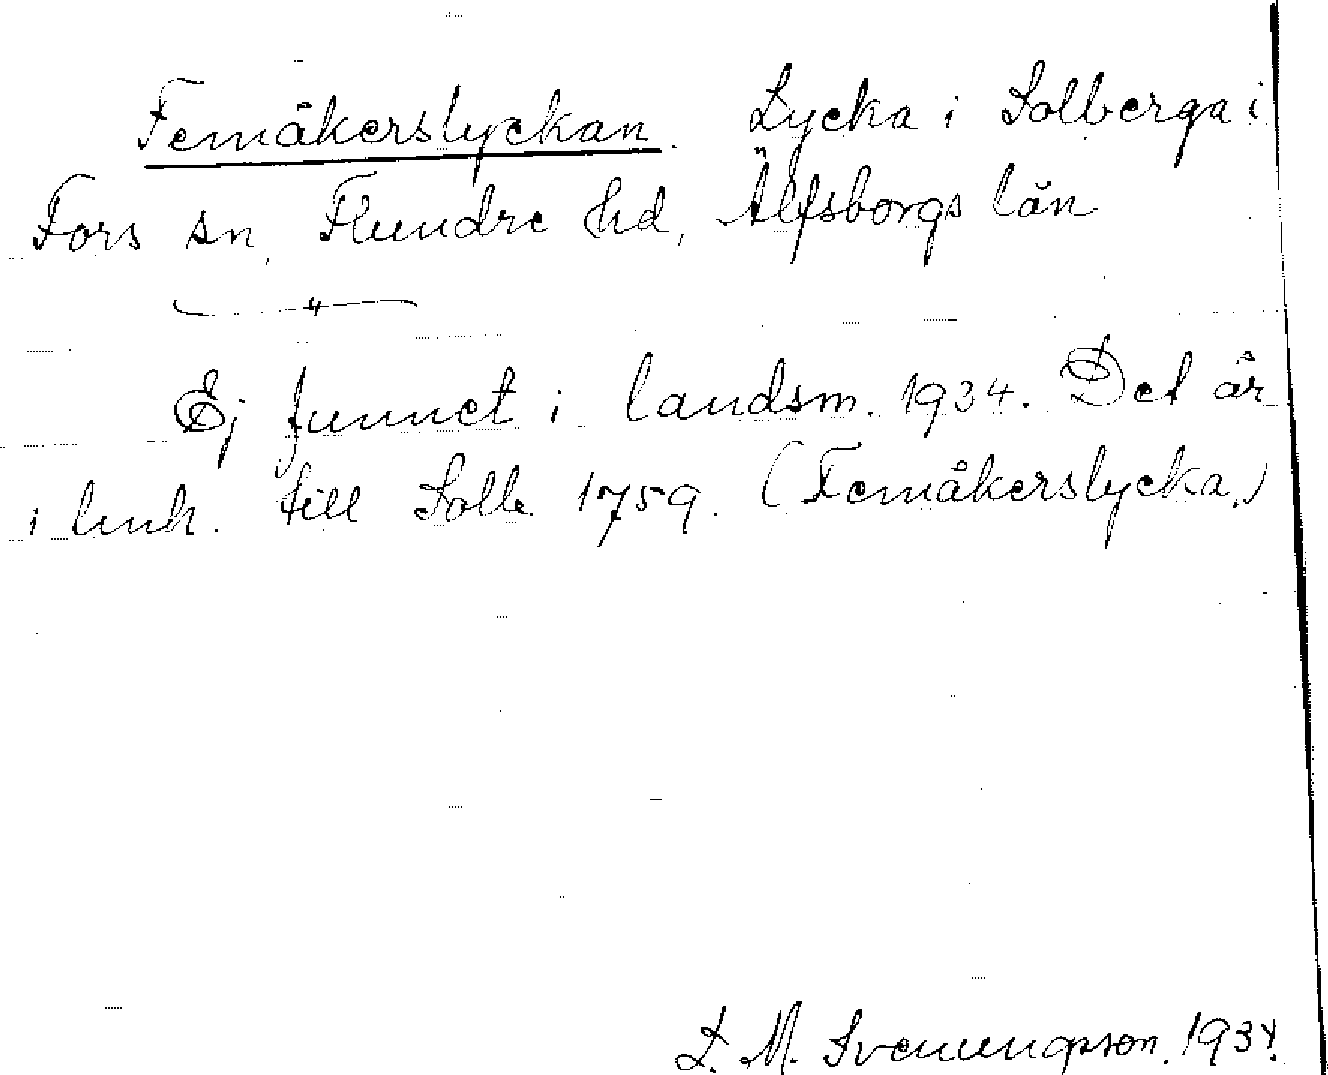 Femåkerslyckan. Lycka i Solberga i
Fors sn, Flundre hd, Älfsborgs län
— " —
Ej funnet i landsm. 1934. Det är
i lmh. till Solb. 1759. (Femåkerslycka,)
L. M. Svenungsson. 1934.